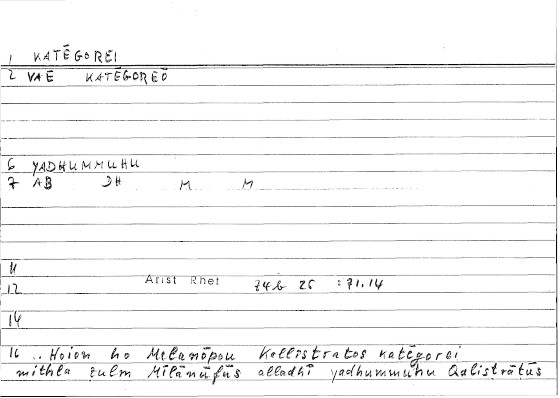 1 KATĒGOREI
2 VAE KATĒGOREŌ
6 YADHUMMUHU
7 AB DH M M
11
12 Arist Rhet 74b 25 :71.14
14
16 ..Hoion ho Melanōpou Kallistratos katēgorei
mithla ẓulm Mīlānūfūs alladhī yadhummuhu Qalisṭrāṭūs